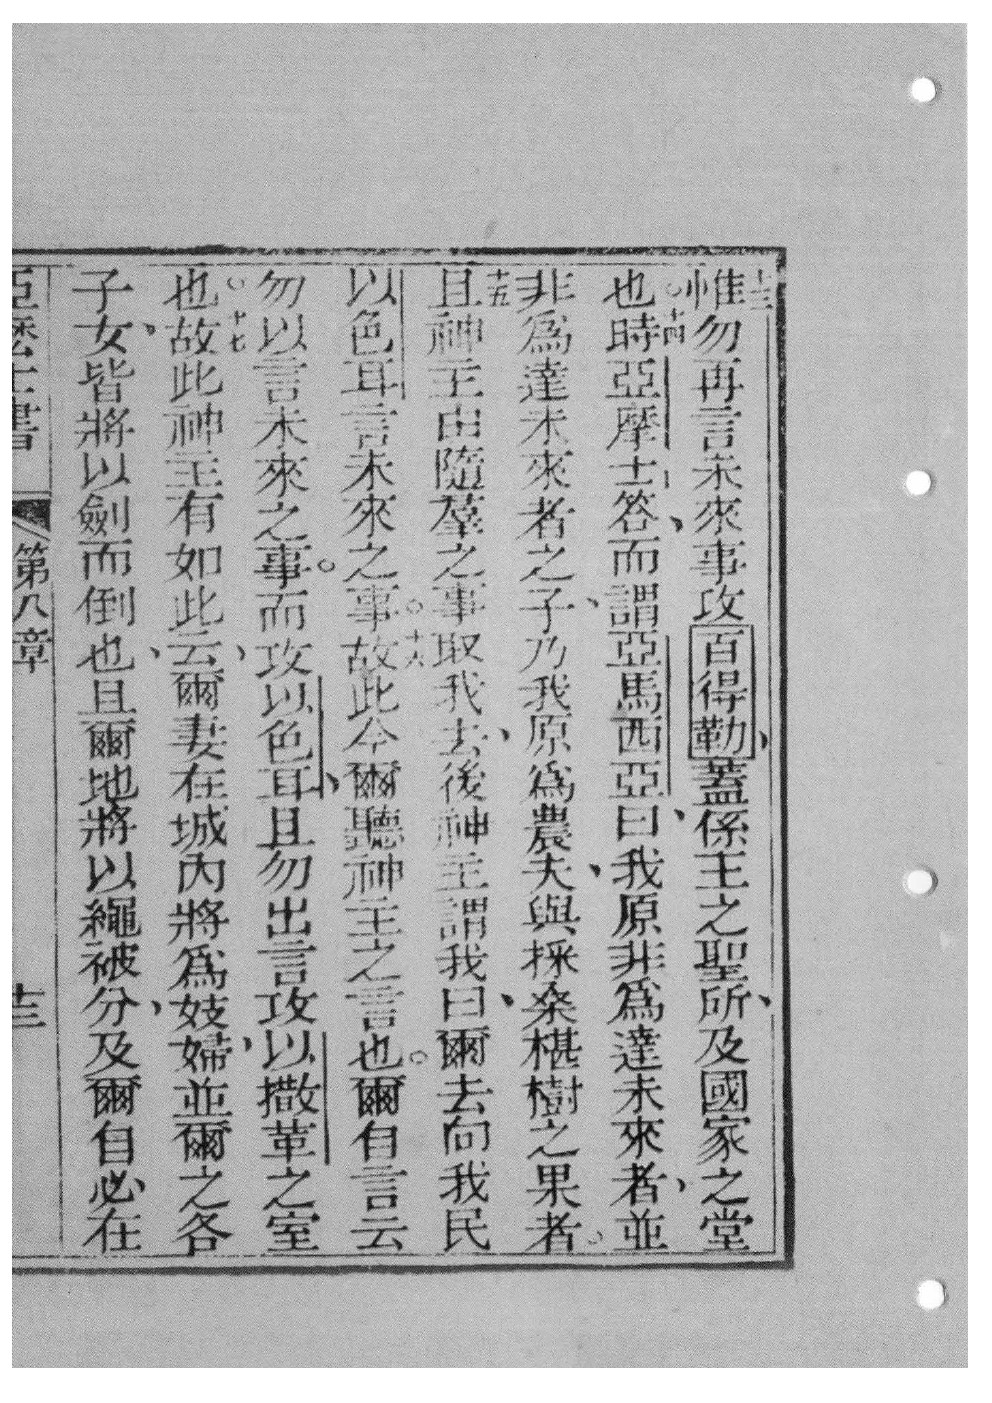 十三惟勿再言未來事攻百得勒、蓋係王之聖所、及國家之堂
也。十四時亞摩士答、而謂亞馬西亞曰、我原非爲達未來者、並
非爲達未來者之子、乃我原爲農夫、與採桑椹樹之果者。
十五且神主由隨羣之事取我去、後神主謂我曰、爾去向我民
以色耳言未來之事。十六故此今爾聽神主之言也。爾自言云
勿以言未來之事。而攻以色耳、且勿出言攻以撒革之室
也。十七故此神主有如此云、爾妻在城內將爲妓婦、並爾之各
子女、皆將以劍而倒也、且爾地將以繩被分、及爾自必、在
亞麽士書 第八章 十三